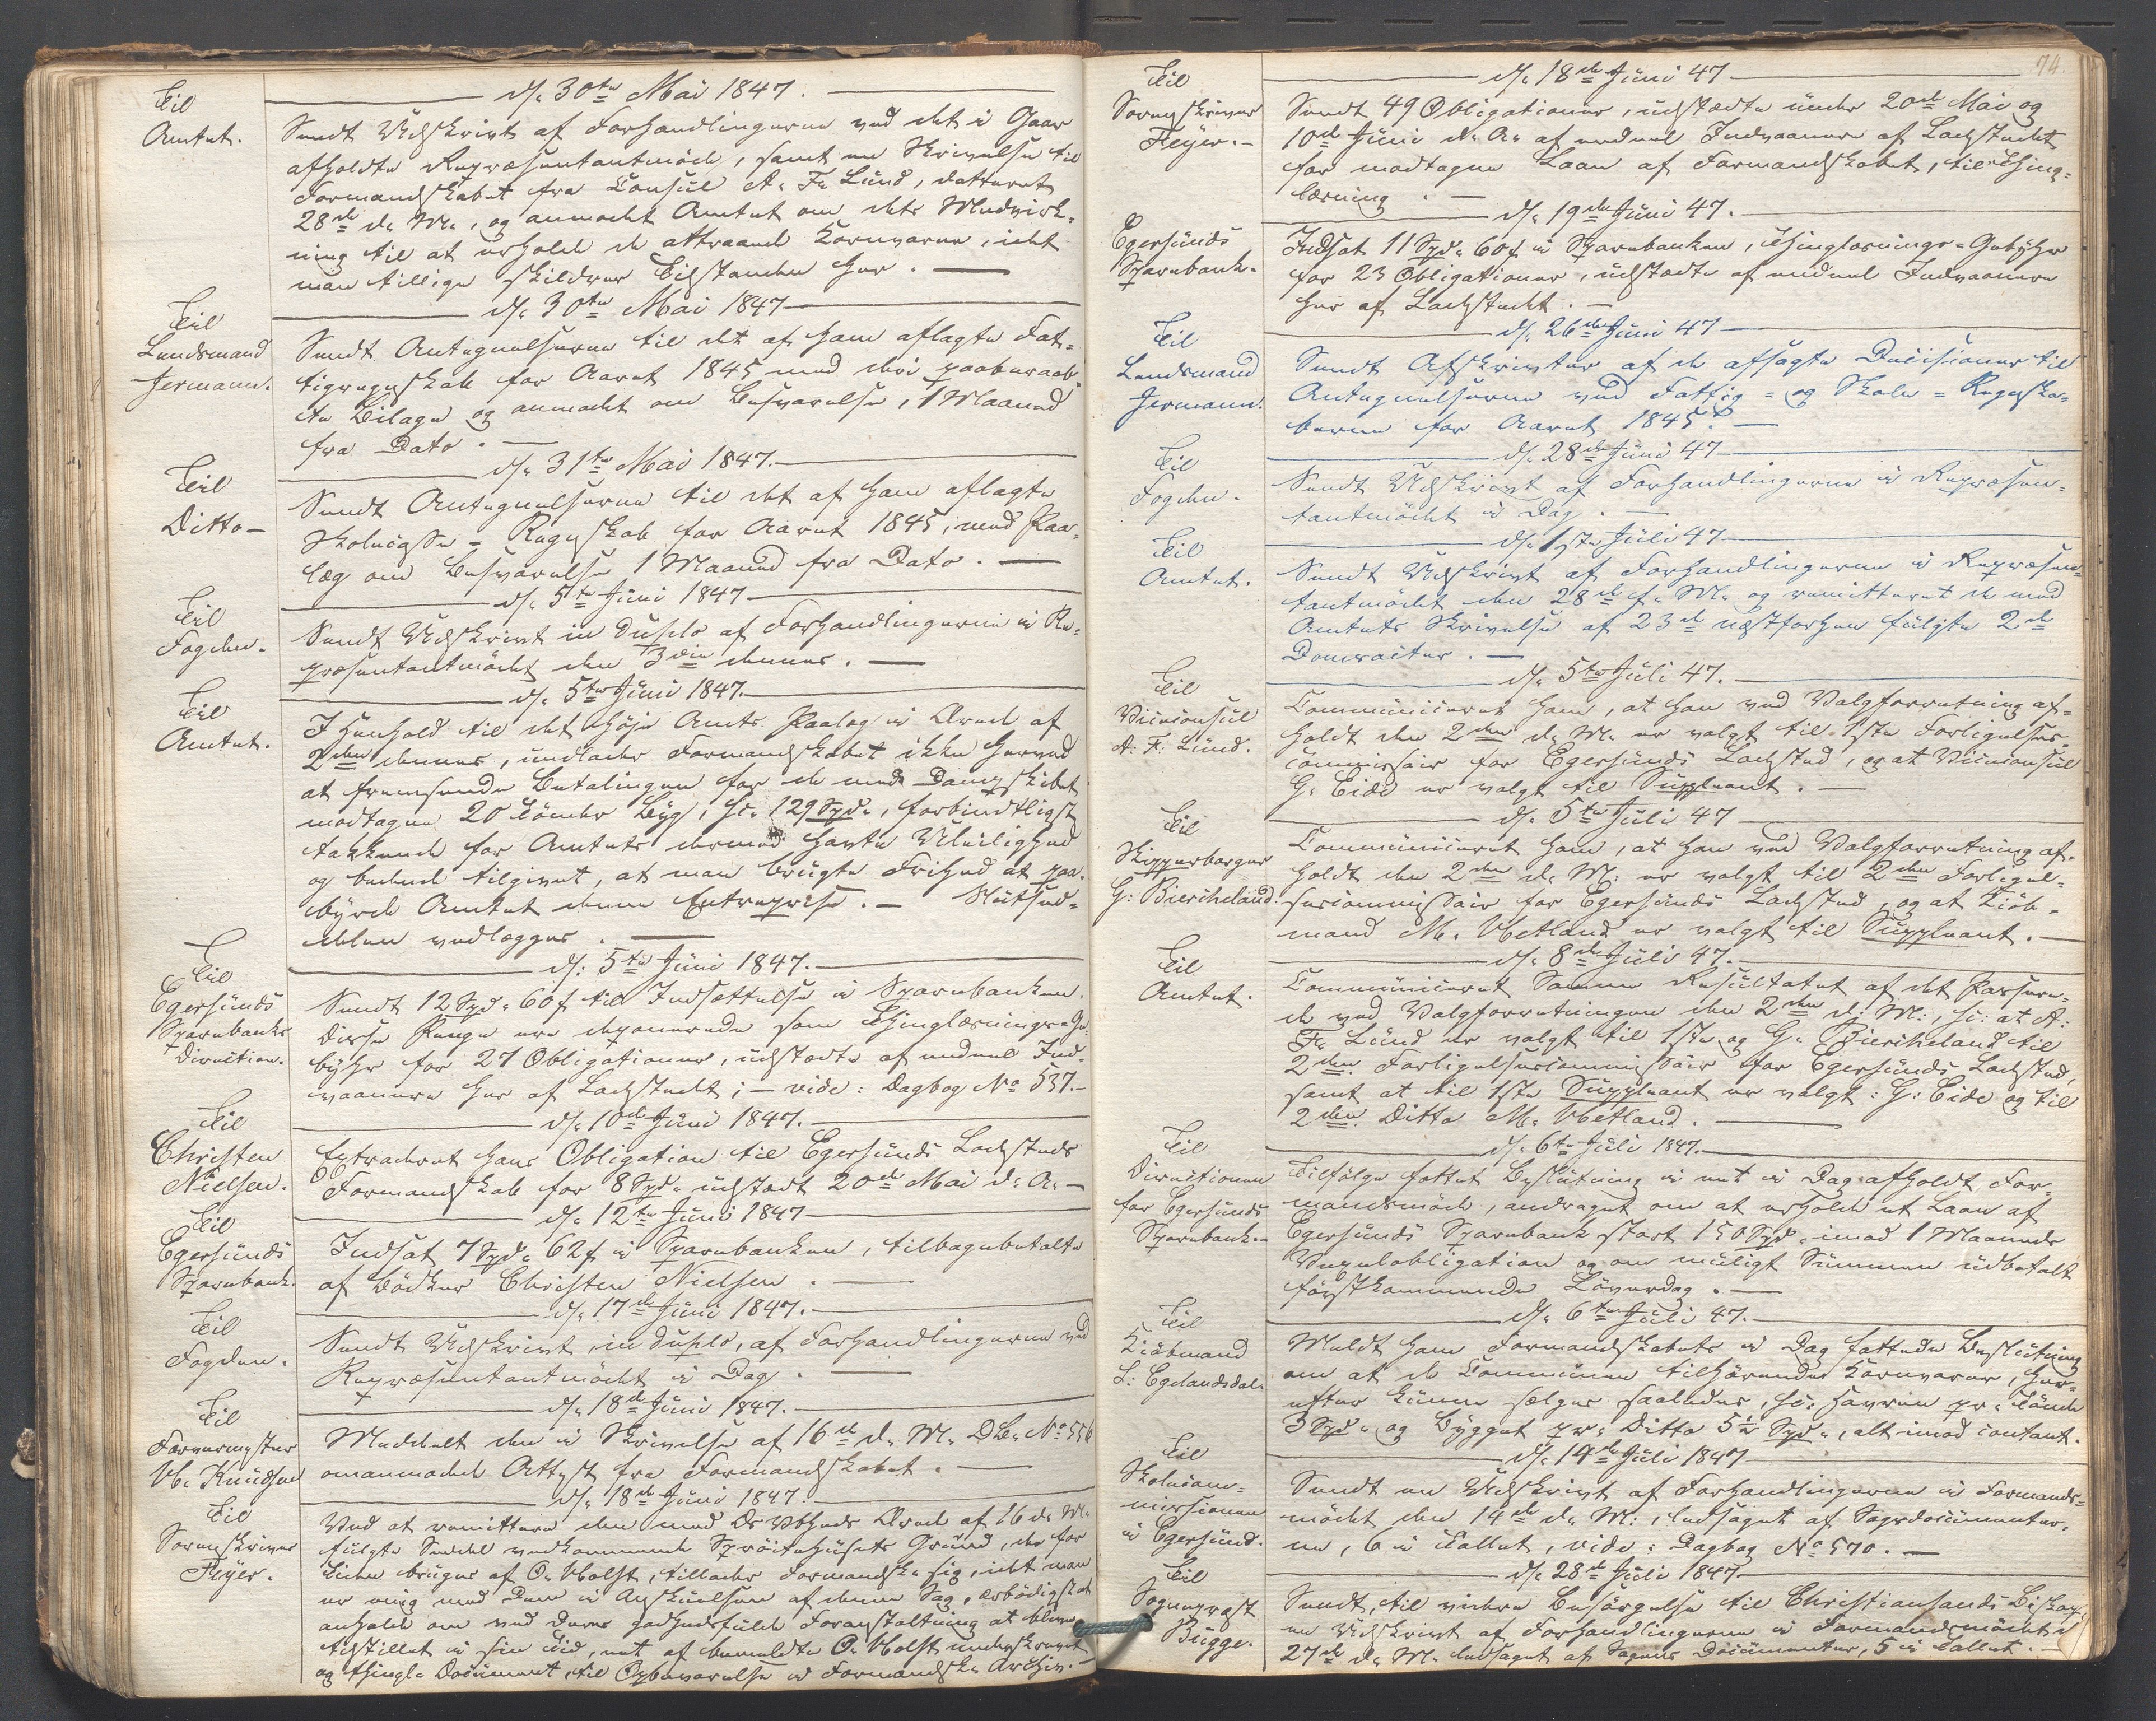 Til
Amtet.
d/: 30te Mai 1847.
Sendt Udskrivt af Forhandlingerne ved det i Gaar
afholdte Repræsentantmöde, samt en Skrivelse til
Formandskabet fra Consül A. F. Lünd, datteret
28de d. M., og anmodet Amtet om dets Medvirk-
ning til at erholde de attraaede Kornvarer, idet
man tillige skildrer Tilstanden her. —
Til
Lendsmand
Jermann.
d/: 30te Mai 1847
Sendt Antegnelserne til det af ham aflagte Fat-
tigregnskab for Aaret 1845 med deri paaberaab-
te Bilage og anmodet om Besvarelse, 1 Maaned
fra Dato. —
Til
Ditto —
d/: 31te Mai 1847.
Sendt Antegnelserne til det af ham aflagte
Skolecasse-Regnskab for Aaret 1845, med Paa-
læg om Besvarelse 1 Maaned fra Dato. —
Til
Fogden.
d/: 5te Jüni 1847
Sendt Udskrivt in duplo af Forhandlingerne i Re-
præsentantmödet den 3die dennes. —
Til
Amtet.
d/: 5te Jüni 1847.
I Henhold til det höje Amts Paalæg i Brev af
2den dennes, undlader Formandskabet ikke herved
at fremsende Betalingen for de med Dampskibet
modtagne 20 Tönder Byg, hc. 129 Spd., forbindtligst
takkende for Amtets dermed havte Uleilighed
og bedende tilgivet, at man brügte Frihed at paa-
byrde Amtet denne Entreprise. —
vedlægges. —
Til
Egersünds
Sparebanks
Direction.
d/: 5te Jüni 1847.
Sendt 12 Spd. 60 f til Indsættelse i Sparebanken.
Disse Penge ere deponerede som Thinglæsnings-Ge-
byhr for 27 Obligationer, udstedte af endeel Ind-
vaanere her af Ladstedet; — vide: Dagbog No 537. —
Til
Christen
Nielsen.
d/: 10de Jüni 1847.
Extraderet hans Obligation til Egersünds Ladsteds
Formandskab for 8 Spd. udstedt 20de Mai d. A. —
Til
Egersünds
Sparebank.
d/: 12te Jüni 1847
Indsat 7 Spd. 62 f i Sparebanken, tilbagebetalte
af Bödker Christen Nielsen. —
Til
Fogden.
d/: 17de Jüni 1847.
Sendt Udskrivt, in duplo, af Forhandlingerne ved
Repræsentantmödet i Dag. —
Til
Farvermester
Knüdsen
d/: 18de Jüni 1847.
Meddeelt den i Skrivelse af 16de d. M. DB. No 556
omanmodede Attest fra Formandskabet. —
Til
Sorenskriver
Feyer.
d/: 18de Jüni 1847.
Ved at remittere den med Brev af 16 d. M.
fülgte Seddel vedkommende Spröitehüsets Gründ, der for
Tiden brüges af O. Holst, tillader Formandsk. sig, idet man
er enig med Dem i Anskuelsen af denne Sag, ærbödigst at
anholde om ved Deres godhedsfülde Foranstaltning at blive
tilstillet i sin Tid, et af bemeldte O. Holst underskrevet
og thingl. Document, til Opbevarelse i Formandsk. Archiv. —
74.
Til
Sorenskriver
Feyer. —
d/: 18de Jüni 47
Sendt 49 Obligationer, udstædte ünder 20de Mai og
10de Jüni d. A. af endeel Indvaanere af Ladstedet
for modtagne Laan af Formandskabet, til Thing-
læsning. —
Egersünds
Sparebank.
d/: 19de Jüni 47.
Indsat 11 Spd. 60 f i Sparebanken, Thinglæsnings-Gebyhr
for 23 Obligationer, udstædte af endeel Indvaanere
her af Ladstedet. —
Til
Lendsmand
Jermann.
d/: 26de Jüni 47
Sendt Afskrivter af de afsagte Decisioner til
Antegnelserne ved Fattig- og Skole-Regnska-
berne for Aaret 1845. —
Til
Fogden.
d/: 28de Jüni 47
Sendt Udskrivt af Forhandlingerne i Repræsen-
tantmödet i Dag. —
Til
Amtet.
d/: 1ste Jüli 47
Sendt Udskrivt af Forhandlingerne i Repræsen-
tantmödet den 28de f. M. og remitteret de med
Amtets Skrivelse af 23de næstforhen fülgte 2de
. —
Til
Viceconsül
A. F. Lünd.
d/: 5te Jüli 47.
Commüniceret ham, at han ved Valgforretning af-
holdt den 2den d. M. er valgt til 1ste Forligelses-
commissair for Egersünds Ladsted, og at Viceconsül
G. Eide er valgt til Suppleant. —
Til
Skipperborger
G: Biercheland.
d/: 5te Jüli 47
Commüniceret ham, at han ved Valgforretning af-
holdt den 2den d. M: er valgt til 2den Forligel-
sescommissair for Egersünds Ladsted, og at Kjöb-
mand M. Hetland er valgt til Suppleant. —
Til
Amtet.
d/: 8de Jüli 47.
Commüniceret Samme Resultatet af det Passere-
de ved Valgforretningen den 2den d. M:, hc: at A:
F. Lünd er valgt til 1ste og G. Biercheland til
2den Forligelsescommissair for Egersünds Ladsted,
samt at til 1ste Suppleant er valgt: G: Eide og til
2den Ditto M. Hetland. —
Til
Directionen
for Egersünds
Sparebank. —
d/: 6te Jüli 1847.
Tilfölge fattet Beslütning i et i Dag afholdt For-
mandsmöde, andraget om at erholde et Laan af
Egersünds Sparebank stort 150 Spd. imod 1 Maaneds
Vexelobligation og om müligt Summen üdbetalt
förstkommende Löverdag. —
Til
Kiöbmand
L: Egelandsdal.
d/: 6te Jüli 47.
Meldt ham Formandskabets i Dag fattede Beslütning
om at de Commünen tilhörende Kornvarer, her-
efter künne sælges saaledes, hc: Havren pr. Tönde
3 Spd. og Bygget pr. Ditto 5½ Spd., alt imod contant.
Til
Skolecom-
missionen
i Egersünd.
d/: 14de Jüli 1847
Sendt en Udskrivt af Forhandlingerne i Formands-
mödet den 14de d. M:, ledsaget af Sagsdocümenter-
ne, 6 i Tallet, vide: Dagbog No 570. —
Til
Sognepræst
Bügge.
d/: 28de Jüli 1847
Sendt, til videre Besörgelse til Christiansands Biskop,
en Udskrivt af Forhandlingerne i Formandsmödet d
27de d. M. ledsaget af Sagens Docümenter, 5 i Tallet. —